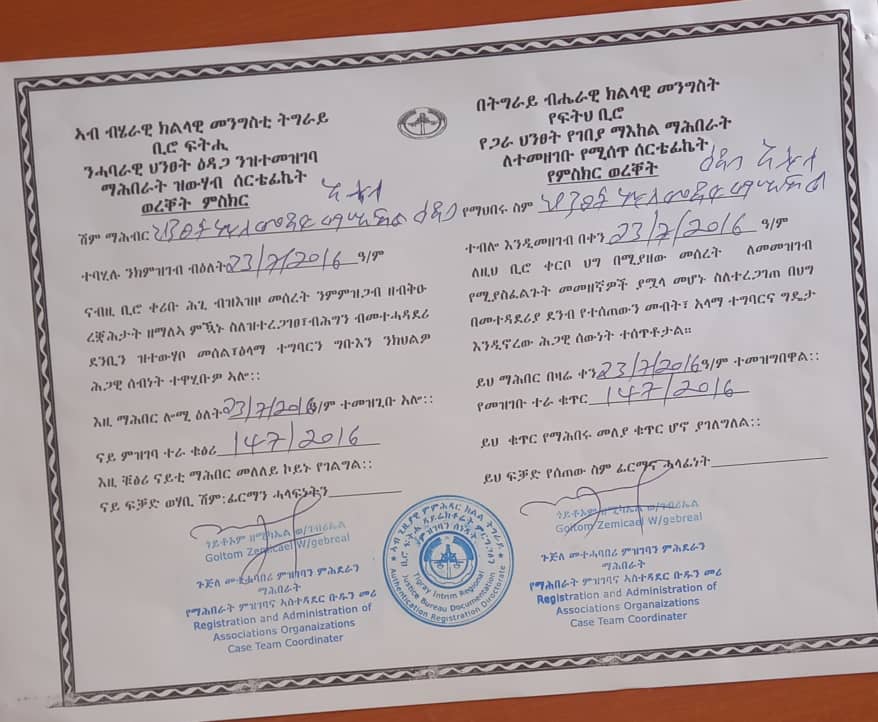 ኣብ ብሄራዊ ክልላዊ መንግስቲ ትግራይ
ቢሮ ፍትሒ
ንሓባራዊ ህንፀት ዕዳጋ ንዝተመዝገባ
ማሕበራት ዝውሃብ ሰርቴፊኬት
ወረቐት ምስክር
ሽም ማሕብር
ተባሂሉ ንክምዝገብ ብዕለት 23/7/2016 ዓ/ም
ናብዚ ቢሮ ቀሪቡ ሕጊ ብዝእዝዞ መሰረት ንምምዝጋብ ዘብትዑ
ረቛሕታት ዘማለአ ምዃኑ ስለዝተረጋገፀ፣ብሕግን ብመተሓዳደሪ
ደንቢን ዝተውሃቦ መሰል፣ዕላማ ተግባርን ግቡእን ንክህልዎ
ሕጋዊ ሰብነት ተዋሂቡዎ ኣሎ፡፡
እዚ ማሕበር ሎሚ ዕለት 23/7/2016 ዓ/ም ተመዝጊቡ አሎ፡፡
ናይ ምዝገባ ተራ ቁፅሪ 147/2016
እዚ ቑፅሪ ናይቲ ማሕበር መለለይ ኮይኑ የገልግል፡፡
ናይ ፍቓድ ወሃቢ ሽም፡ፊርማን ሓላፍነትን
ጎይቶኦም ዘሚካኤል ወ/ገብሪኤል
Goitom Zemicael W/gebreal
ጉጅለ መተሓባበሪ ምዝገባን ምሕደራን
ማሕበራት
የማሕበራት ምዝገባና ኣስተዳደር ቡዱን መሪ
Registration and Administration of
Associations Organaizations
Case Team Coordinater
በትግራይ ብሔራዊ ክልላዊ መንግስት
የፍትህ ቢሮ
የጋራ ህንፀት የገበያ ማእከል ማሕበራት
ለተመዘገቡ የሚሰጥ ሰርቴፊኬት
የምስክር ወረቐት
የማህበሩ ስም
ተብሎ እንዲመዘገብ በቀን 23/7/2016 ዓ/ም
ለዚህ ቢሮ ቀርቦ ህግ በሚያዘው መሰረት ለመመዝገብ
የሚያስፈልጉት መመዘኛዎች ያሟላ መሆኑ ስለተረጋገጠ በህግ
በመተዳደሪያ ደንብ የተሰጠውን መብት፣ አላማ ተግባርና ግዴታ
እንዲኖረው ሕጋዊ ሰውነት ተሰጥቶታል።
ይህ ማሕበር በዛሬ ቀን 23/7/2016 ዓ/ም ተመዝግበዋል፡፡
የመዝገቡ ተራ ቁጥር 147/2016
ይህ ቁጥር የማሕበሩ መለያ ቁጥር ሆኖ ያገለግላል፡፡
ይህ ፍቓድ የሰጠው ስም ፊርማና ሓላፊነት
ጎይቶኦም ዘሚካኤል ወ/ገብሪኤል
Goitom Zemicael W/gebreal
ጉጅለ መተሓባበሪ ምዝገባን ምሕደራን
ማሕበራት
የማሕበራት ምዝገባና ኣስተዳደር ቡዱን መሪ
Registration and Administration of
Associations Organaizations
Case Team Coordinater
Tigray Intrim Regional
Justice Bureau Documentation
Authentication Registration Directorate